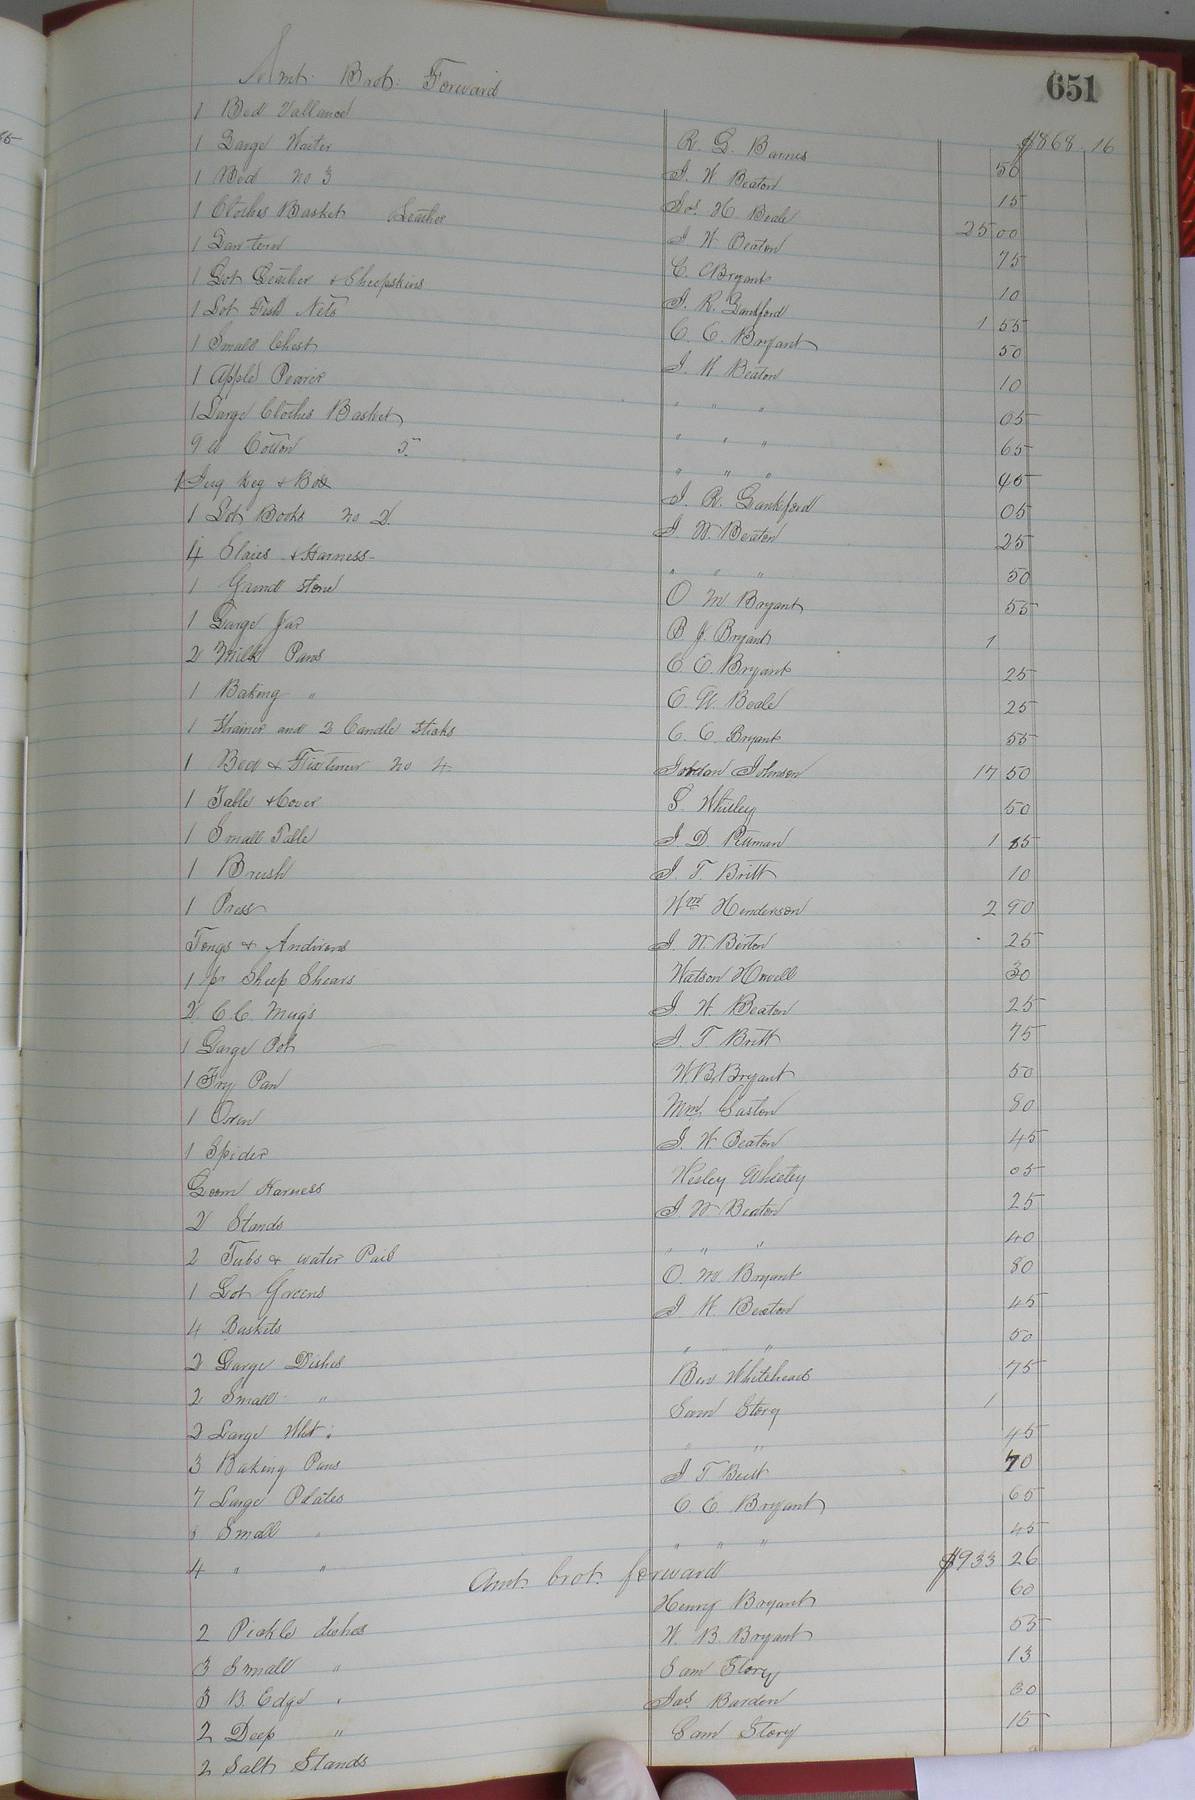 651
Amt. Brot. Forward $868.16
1 Bed Vallance R. G. Barnes 50
1 Large Waiter J. W. Beaton 15
1 Bed no 3 Jos. H Beale 25 00
1 Clothes Basket Leather J W Beaton 75
1 Lantern C. C Bryant 10
1 Lot Leather & Sheepskins J. R. Lankford 1 55
1 Lot Fish Nets C. C. Bryant 50
1 Small Chest J. W Beaton 10
1 Apple Pearer " " " 05
1 Large Clothes Basket " " " 65
9 lb Cotton 5. " " " 45
1 Jug keg & Box J. R. Lankford 05
1 Lot Books no 2 J. W. Beaton 25
4 Slaies & Harness " " " 50
1 Grind Stone O M Bryant 55
1 Large Jar B J. Bryant 1
2 Milk Pans C. C. Bryant 25
1 Baking " E. W. Beale 25
1 Strainer and 2 Candle Sticks C. C. Bryant 55
1 Bed & Fixtures no 4 Jordan Johnson 17 50
1 Table & Cover S. Whitley 50
1 Small Table J. D. Pittman 1 25
1 Brush J. T. Britt 10
1 Press Wm Henderson 2 90
Tongs & Andirons J. W. Beaton 25
1 pr Sheep Shears Watson Howell 30
2 C. C. Mugs J. W. Beaton 25
1 Large Pot J. T Britt 75
1 Fry Pan W. B. Bryant 50
1 Oven Wm. Gaston 80
1 Spider J. W Beaton 45
Loom Harness Wesley Whitley 05
2 Stands J. W Beaton 25
2 Tubs & water Pail " " " 40
1 Lot Greens O. M. Bryant 80
4 Baskets J. W. Beaton 45
2 Large Dishes " " 50
2 Small " Ben Whitehead 75
2 Large Whit " Sam Story 1
3 Baking Pans " " 45
7 Large Plates J T Britt 70
Small " C. C. Bryant 65
4 " " " " " 45
Amt. brot. forward $933 26
2 Pickle dishes Henry Bryant 60
3 Small " W. B. Bryant 55
3 B. Edge " Sam Story 13
2 Deep " Jas. Barden 30
2 Salt Stands Sam Story 15